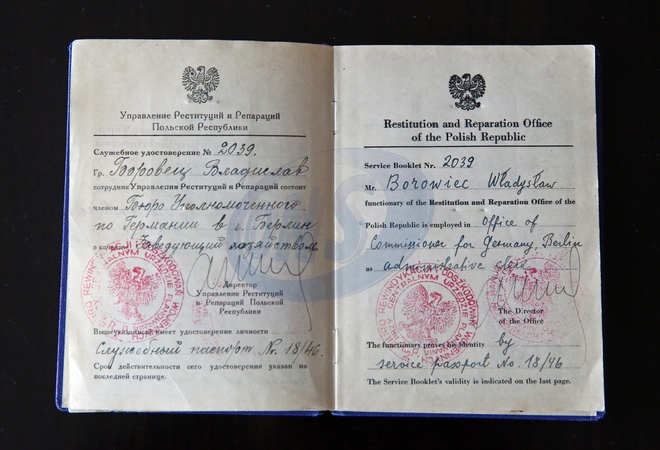 Управление Реституций и Репараций
Польской Республики
Служебное удостоверение № 2039.
Гр. Боровец Владислав
сотрудник Управления Реституций и Репараций состоит
членом Бюро Уполномоченного
по Германии в г. Берлин
в Заведующий хозяйством
Директор
Управления Реституций
и Репараций Польской
Республики
имеет удостоверение личности
Служебный паспорт Nr. 18/46.
Срок действительности сего удостоверения указан на
последней странице.
Restitution and Reparation Office
of the Polish Republic
Service Booklet Nr. 2039
Mr. Borowiec Władysław
functionary of the Restitution and Reparation Office of the
Polish Republic is employed in office of
Commissioner for Germany, Berlin
as administrative clerk
The Director
of the Office
The functionary proves his identity by
service passport No. 18/46
The Service Booklet's validity is indicated on the last page.